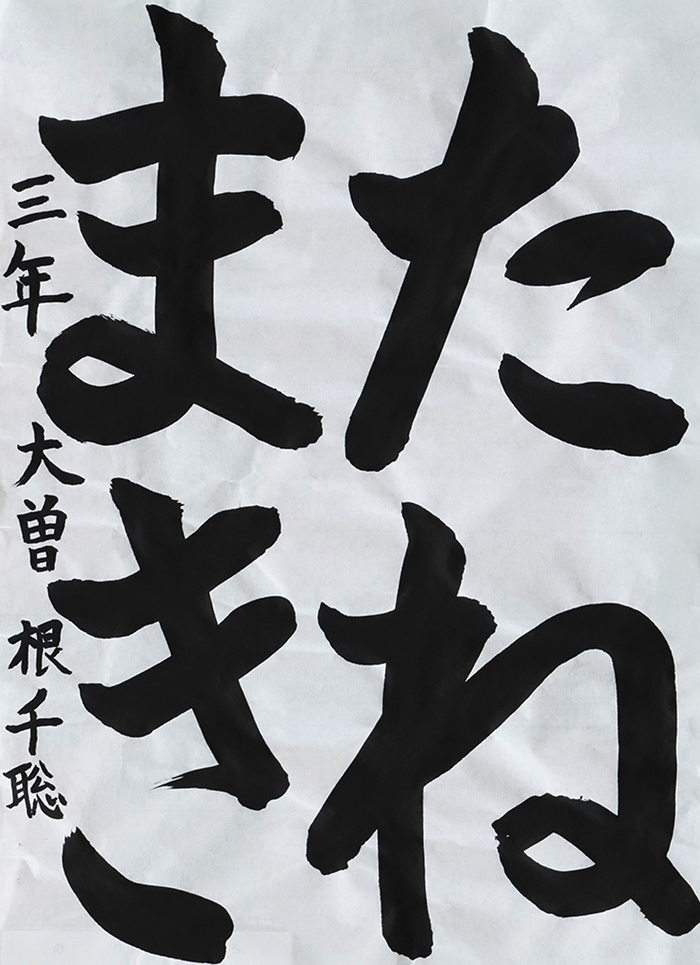 たね
まき
三年 大曽根千聡